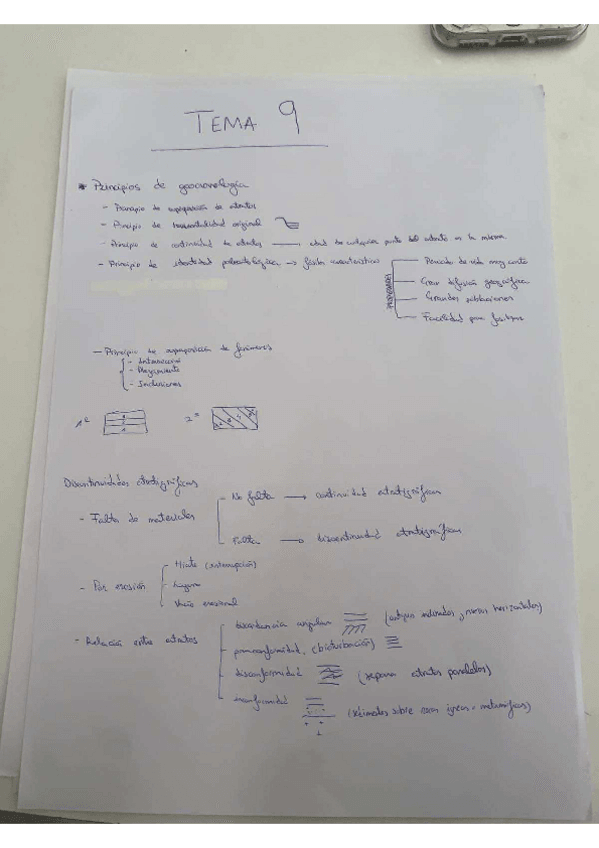 TEMA 9
* Principios de geocronología
- Principio de superposición de estratos
- Principio de horizontalidad original
- Principio de continuidad de estratos → edad de cualquier punto del estrato es la misma
- Principio de identidad paleontológica → fósiles característicos
Periodo de vida muy corto
Gran difusión geográfica
Grandes poblaciones
Facilidad para fosilizar
- Principio de superposición de fenómenos
- Intrusiones
- Plegamiento
- Inclusiones
1º
2º
Discontinuidades estratigráficas
- Falta de materiales
- No falta → continuidad estratigráfica
- Falta → discontinuidad estratigráfica
- Por erosión
- Hiato (interrupción)
- laguna
- Vacío erosional
- Relación entre estratos
- discordancia angular (antiguos inclinados, nuevos horizontales)
- paraconformidad (bioturbación)
- disconformidad (separa estratos paralelos)
- inconformidad (sedimentos sobre rocas ígneas o metamórficas)